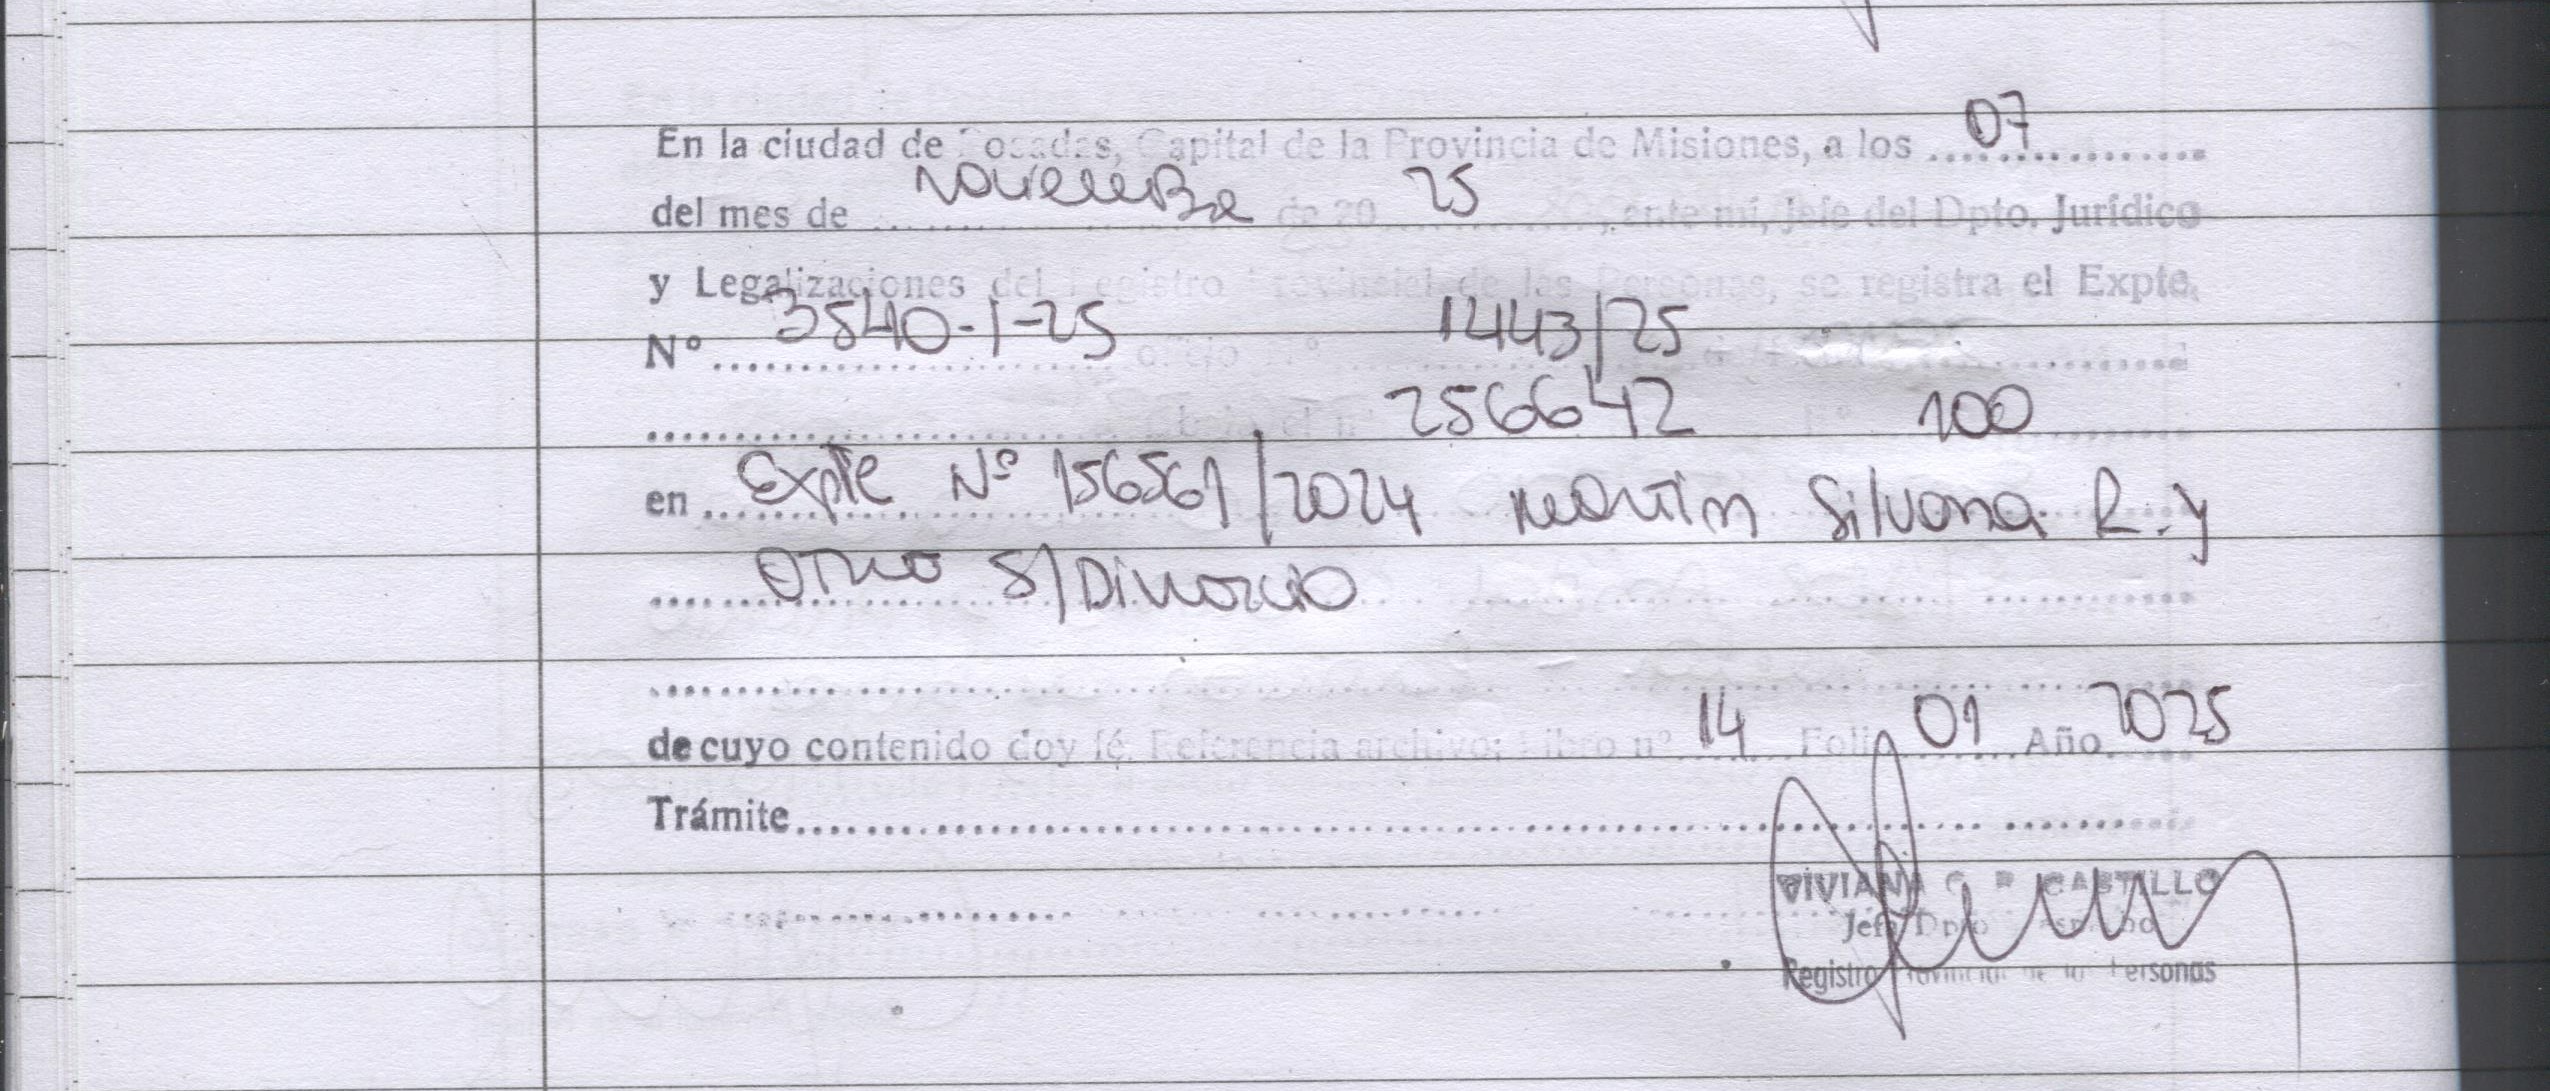 En la ciudad de Posadas, Capital de la Provincia de Misiones, a los 07
del mes de Noviembre de 20 25, ante mí, Jefe del Dpto. Jurídico
y Legalizaciones del Registro Provincial de las Personas, se registra el Expte.
Nº 3540-1-25 oficio Nº 1443/25
2566642 Nº 100
en Expte Nº 156561/2024 Martin Silvana R. y
Otro S/Divorcio
de cuyo contenido doy fé. Referencia archivo: Libro nº 14 Folio 01 Año 2025
Trámite
VIVIANA CASTILLO
Jefa Dpto
Registro Provincial de las Personas